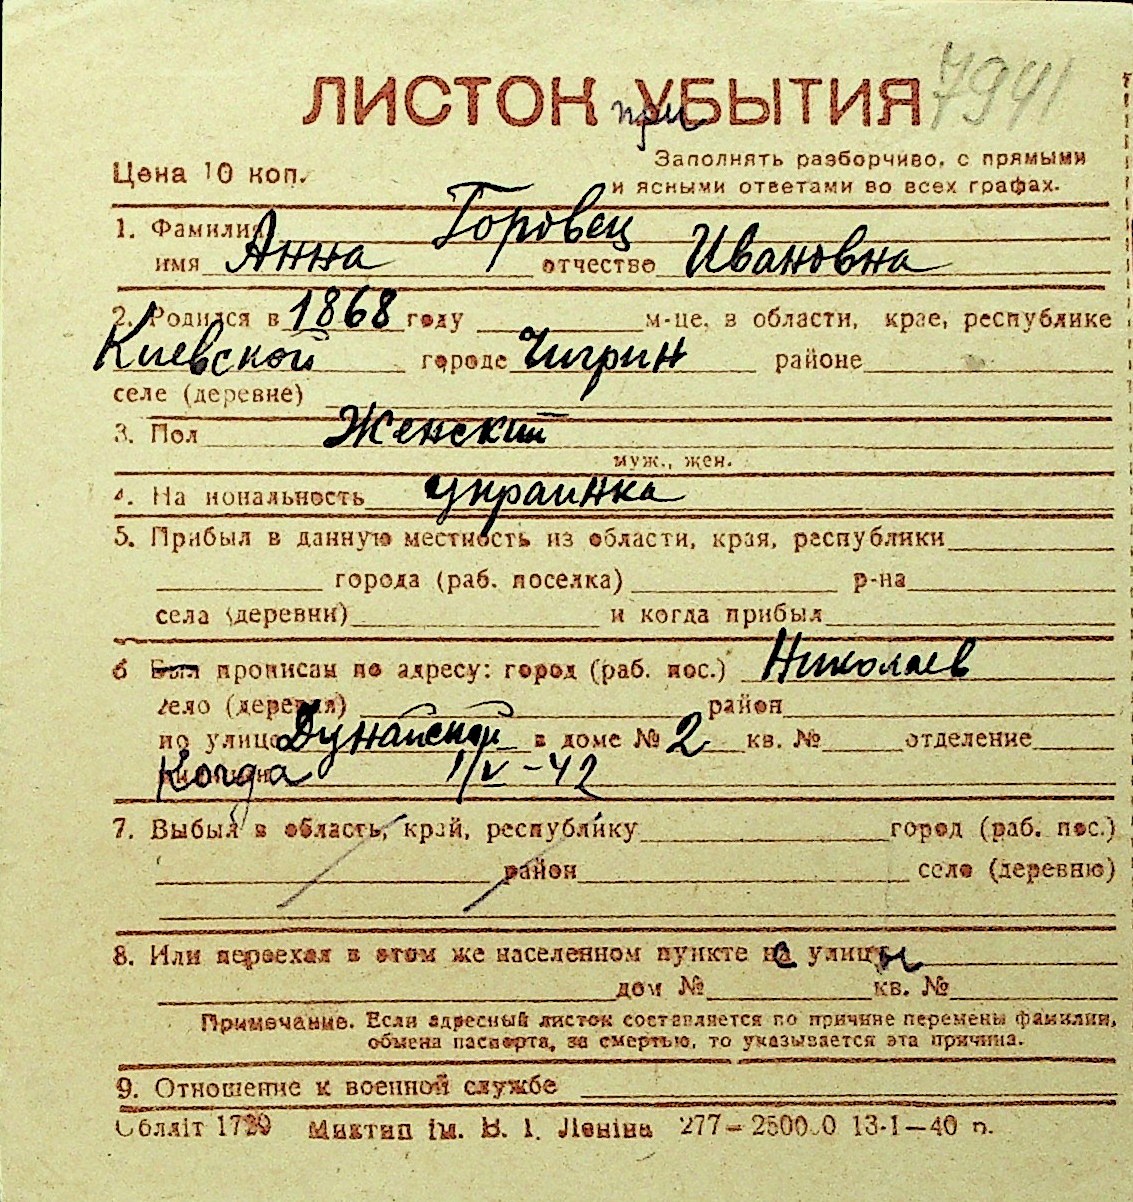 ЛИСТОН приУБЫТИЯ 7941
Цена 10 коп.
Заполнять разборчиво, с прямыми
и ясными ответами во всех графах.
1. Фамилия Горовец
имя Анна отчество Ивановна
2. Родился в 1868 году м-це, в области, крае, республике
Киевской городе Чигрин районе
селе (деревне)
3. Пол Женский
муж., жен.
4. На иональность украинка
5. Прибыл в данную местность из области, края, республики
города (раб. поселка) р-на
села (деревни) и когда прибыл
6 Был прописан по адресу: город (раб. пос.) Николаев
село (деревня) район
по улице Дунайской в доме № 2 кв. № отделение
Когда 1/V-42
7. Выбыл в область, край, республику город (раб. пос.)
район село (деревню)
8. Или переехал в этом же населенном пункте с улицы
дом № кв. №
Примечание. Если адресный листок составляется по причине перемены фамилии,
обмена паспорта, за смертью, то указывается эта причина.
9. Отношение к военной службе
Обліт Миктип ім. В. І. Леніна 13-1-40 п.